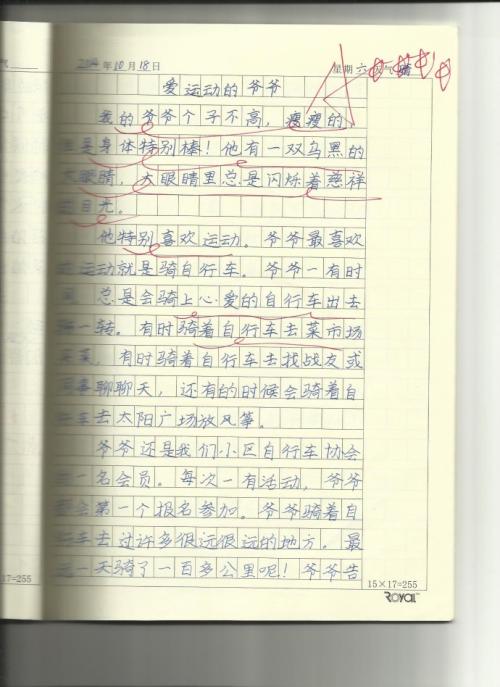 气
2014年10月18日 星期六 天气晴
爱运动的爷爷
我的爷爷个子不高，瘦瘦的，
但是身体特别棒！他有一双乌黑的
大眼睛，大眼睛里总是闪烁着慈祥
的目光。
他特别喜欢运动。爷爷最喜欢
运动就是骑自行车。爷爷一有时
间总是会骑上心爱的自行车出去
转一转。有时骑着自行车去菜市场
买菜，有时骑着自行车去找战友或
同事聊聊天，还有的时候会骑着自
行车去太阳广场放风筝。
爷爷还是我们小区自行车协会
一名会员。每次一有活动，爷爷
都会第一个报名参加。爷爷骑着自
行车去过许多很远很远的地方。最
远一天骑了一百多公里呢！爷爷告
17=255
15×17=255
ROYAL